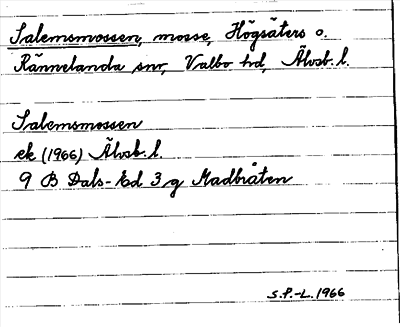 Salemsmossen, mosse, Högsäters o.
Rännelanda snr, Valbo hd, Älvsb. l.
Salemsmossen
ek (1966) Älvsb. l.
9 B Dals-Ed 3 g Madbråten
S.P.-L. 1966